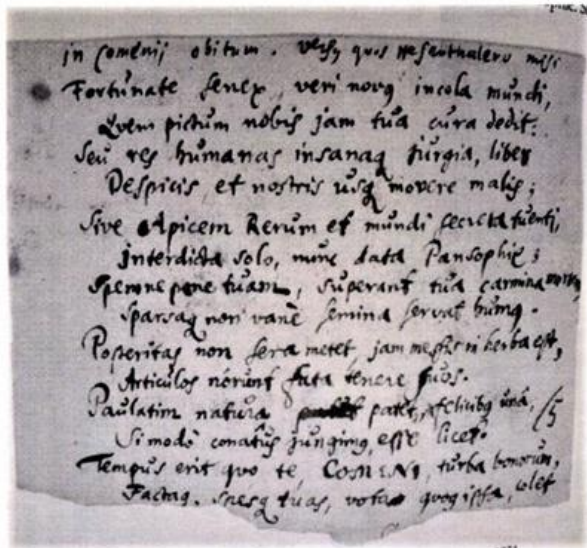 in Comenij obitum. versq quos Hesenthalero misi
Fortunate senex, veri novq incola mundi,
Qvem pictum nobis jam tua cura dedit:
Seu res humanas insanaq jurgia, liber
Despicis et nostris usq movere malis;
Sive Apicem Rerum et mundi secreta tuenti,
interdicta solo, nunc data Pansophiæ;
Spem ne pone tuam, superant tua carmina mortem
sparsaq non vanè semina servat humq.
Posteritas non sera metet, jam messis in herba est,
Articulos nôrunt fata tenere suos.
Paulatim natura patet, felicibq unà,
Si modò conatûs jungimq, esse licet.
Tempus erit quo te, COMENI, turba bonorum,
Factaq. spesq tuas, vota quoq ipsa, colet